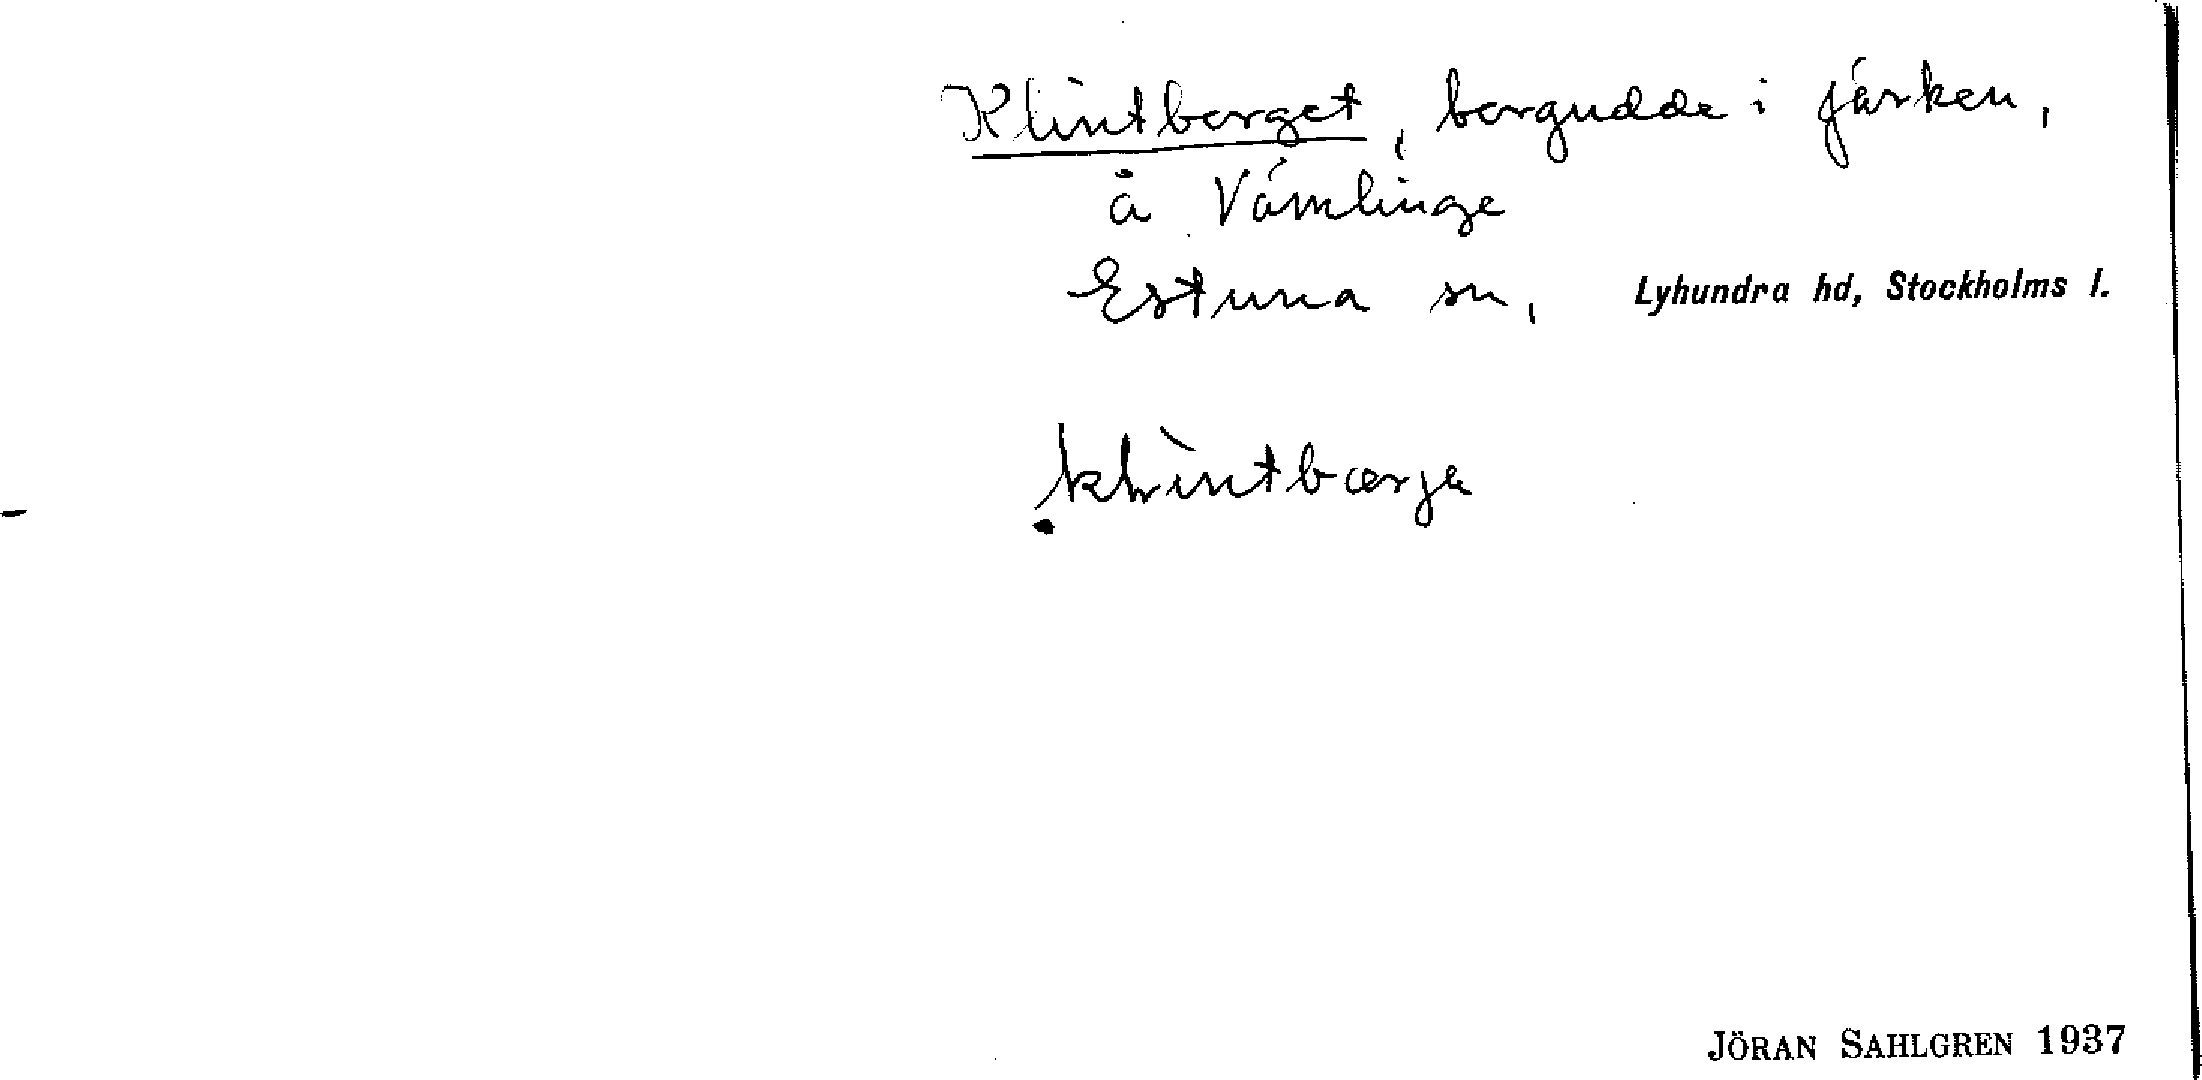 Klintberget, bergudde i fjärken,
å Vämlinge
Estuna sn, Lyhundra hd, Stockholms l.
JÖRAN SAHLGREN 1937